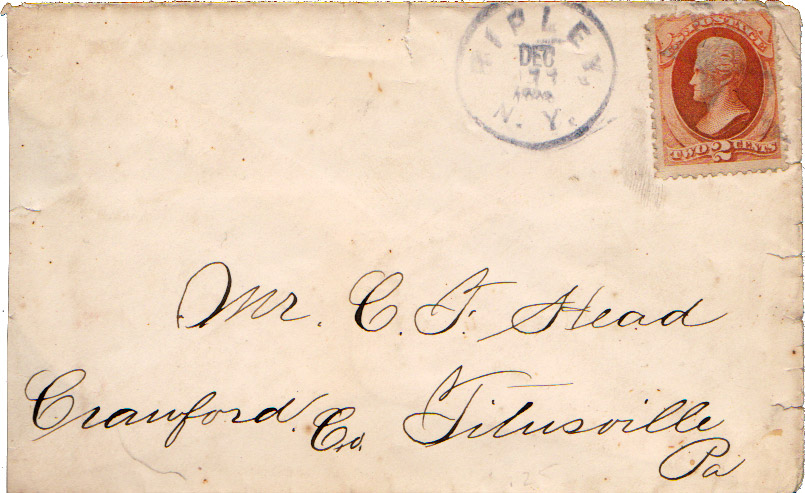 RIPLEY
DEC
N. Y.
POSTAGE
TWO 2 CENTS
Mr. C. F. Head
Crawford. Co. Titusville
Pa